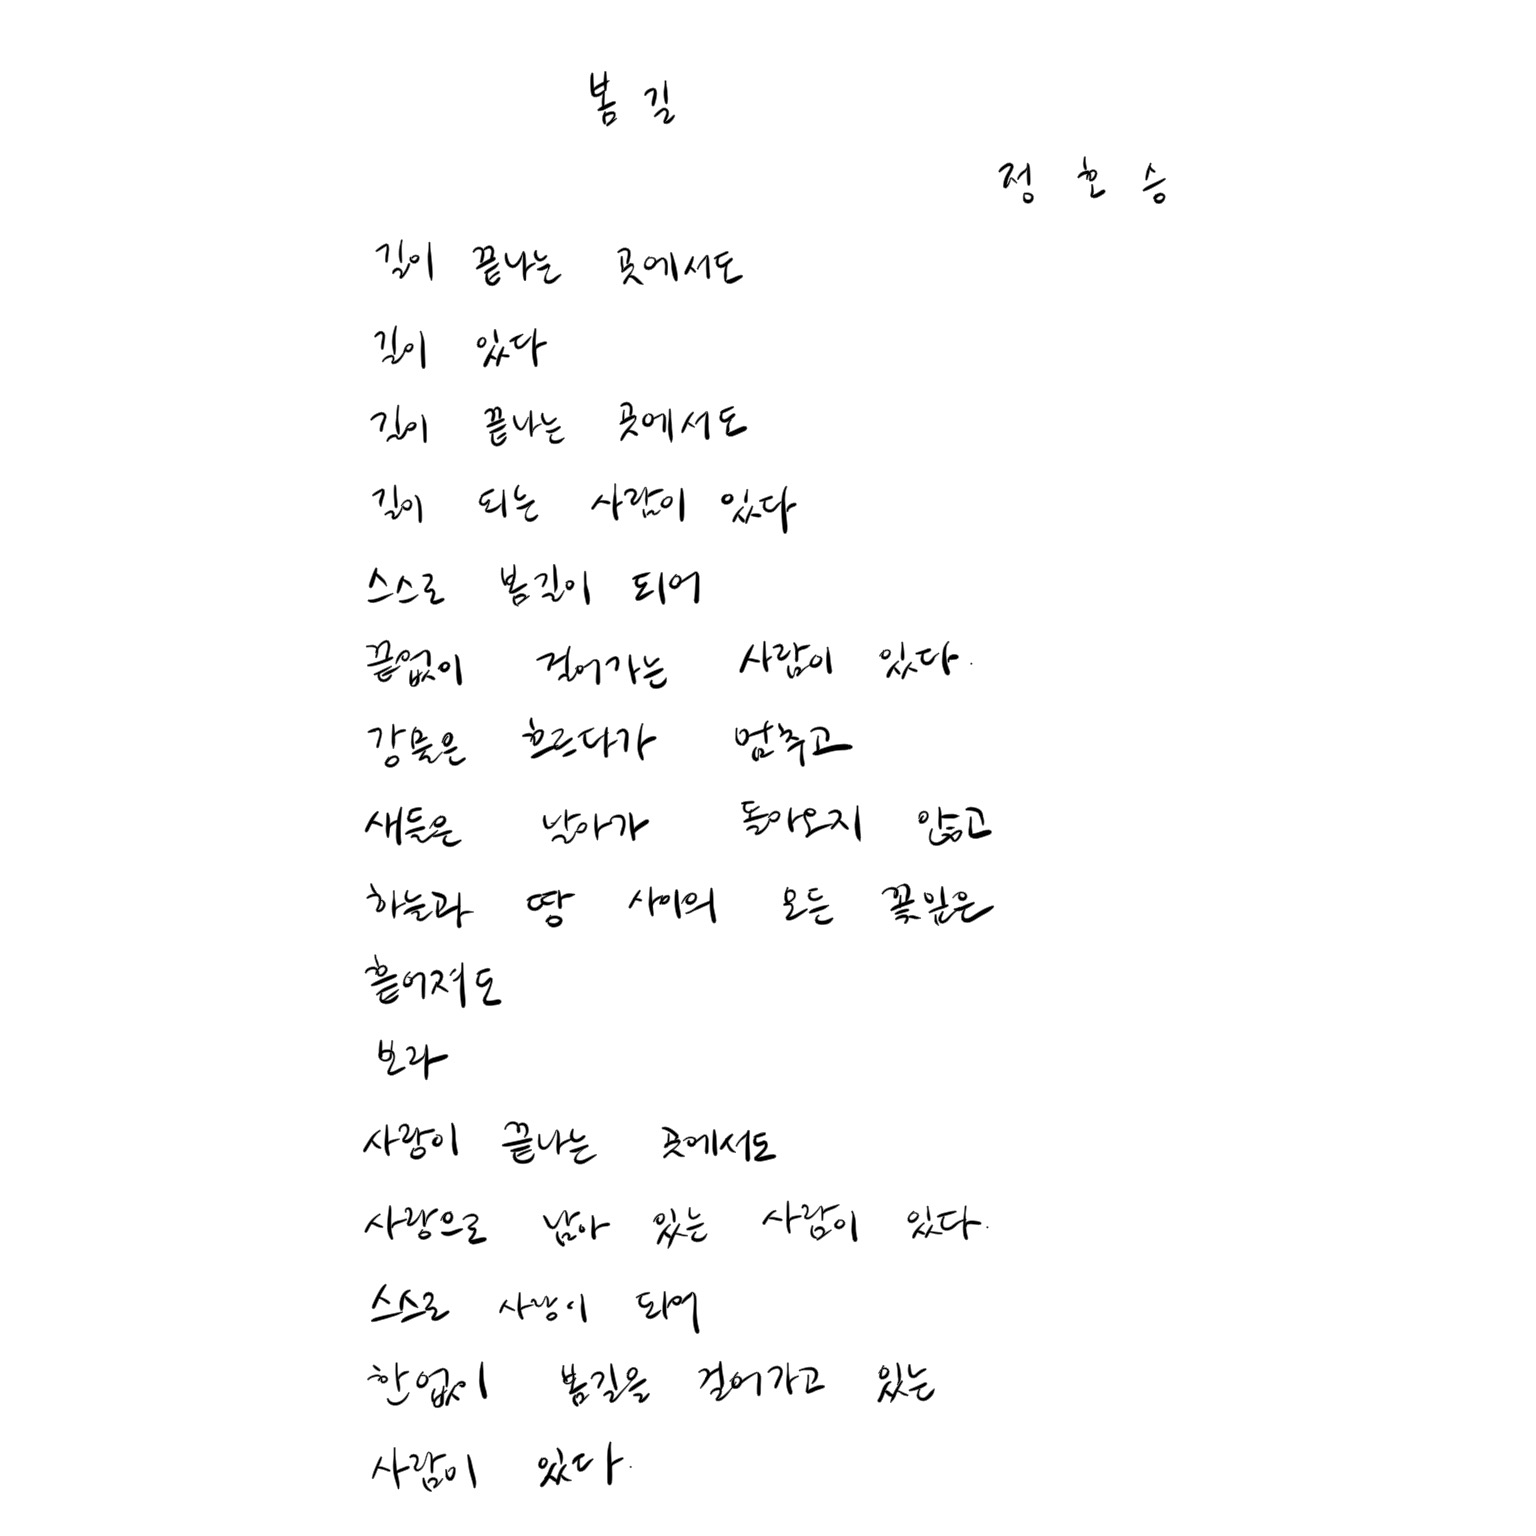 봄길
정호승
길이 끝나는 곳에서도
길이 있다
길이 끝나는 곳에서도
길이 되는 사람이 있다
스스로 봄길이 되어
끝없이 걸어가는 사람이 있다.
강물은 흐르다가 멈추고
새들은 날아가 돌아오지 않고
하늘과 땅 사이의 모든 꽃잎은
흩어져도
보라
사랑이 끝나는 곳에서도
사랑으로 남아 있는 사람이 있다.
스스로 사랑이 되어
한없이 봄길을 걸어가고 있는
사람이 있다.